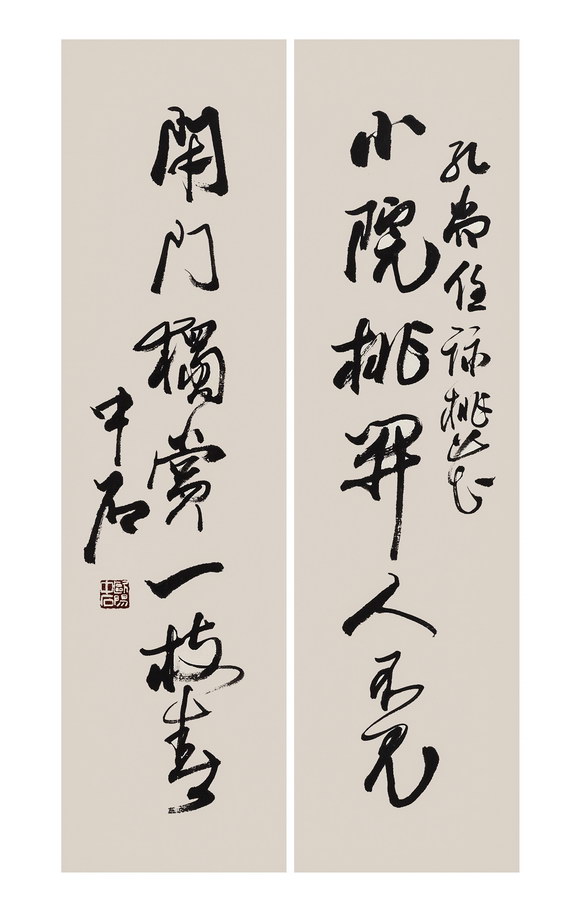 孔尚任詠桃花
小院桃開人不見
閑门獨賞一枝春
中石
歐陽中石